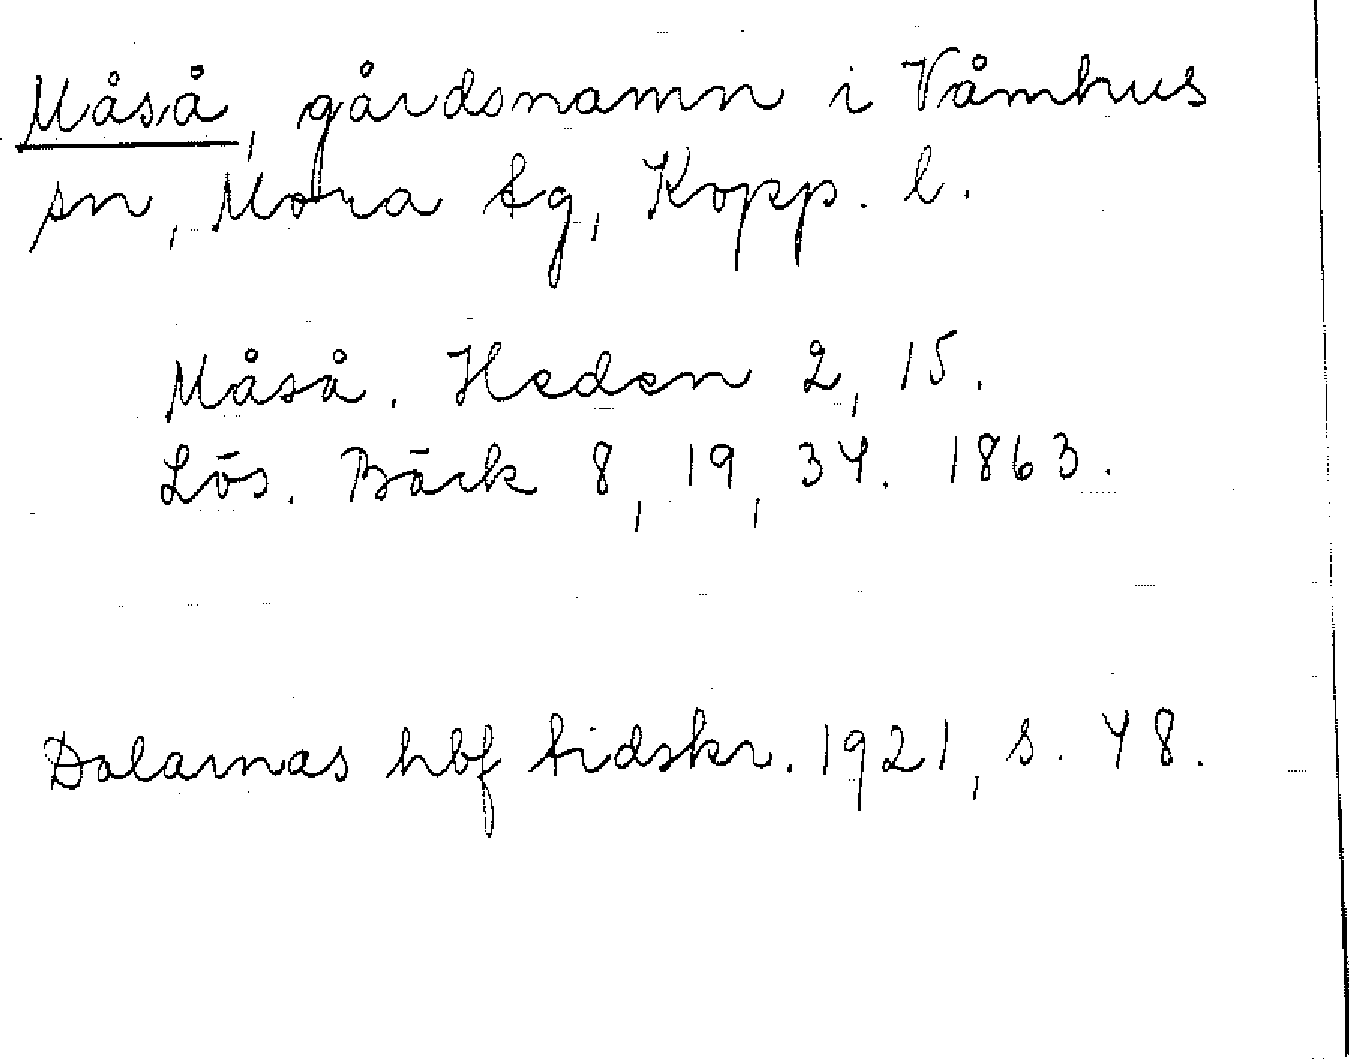 Måså, gårdsnamn i Våmhus
sn, Mora tg, Kopp. l.
Måså. Heden 2, 15.
Lös. Bäck 8, 19, 34. 1863.
Dalarnas hbf tidskr. 1921, s. 48.